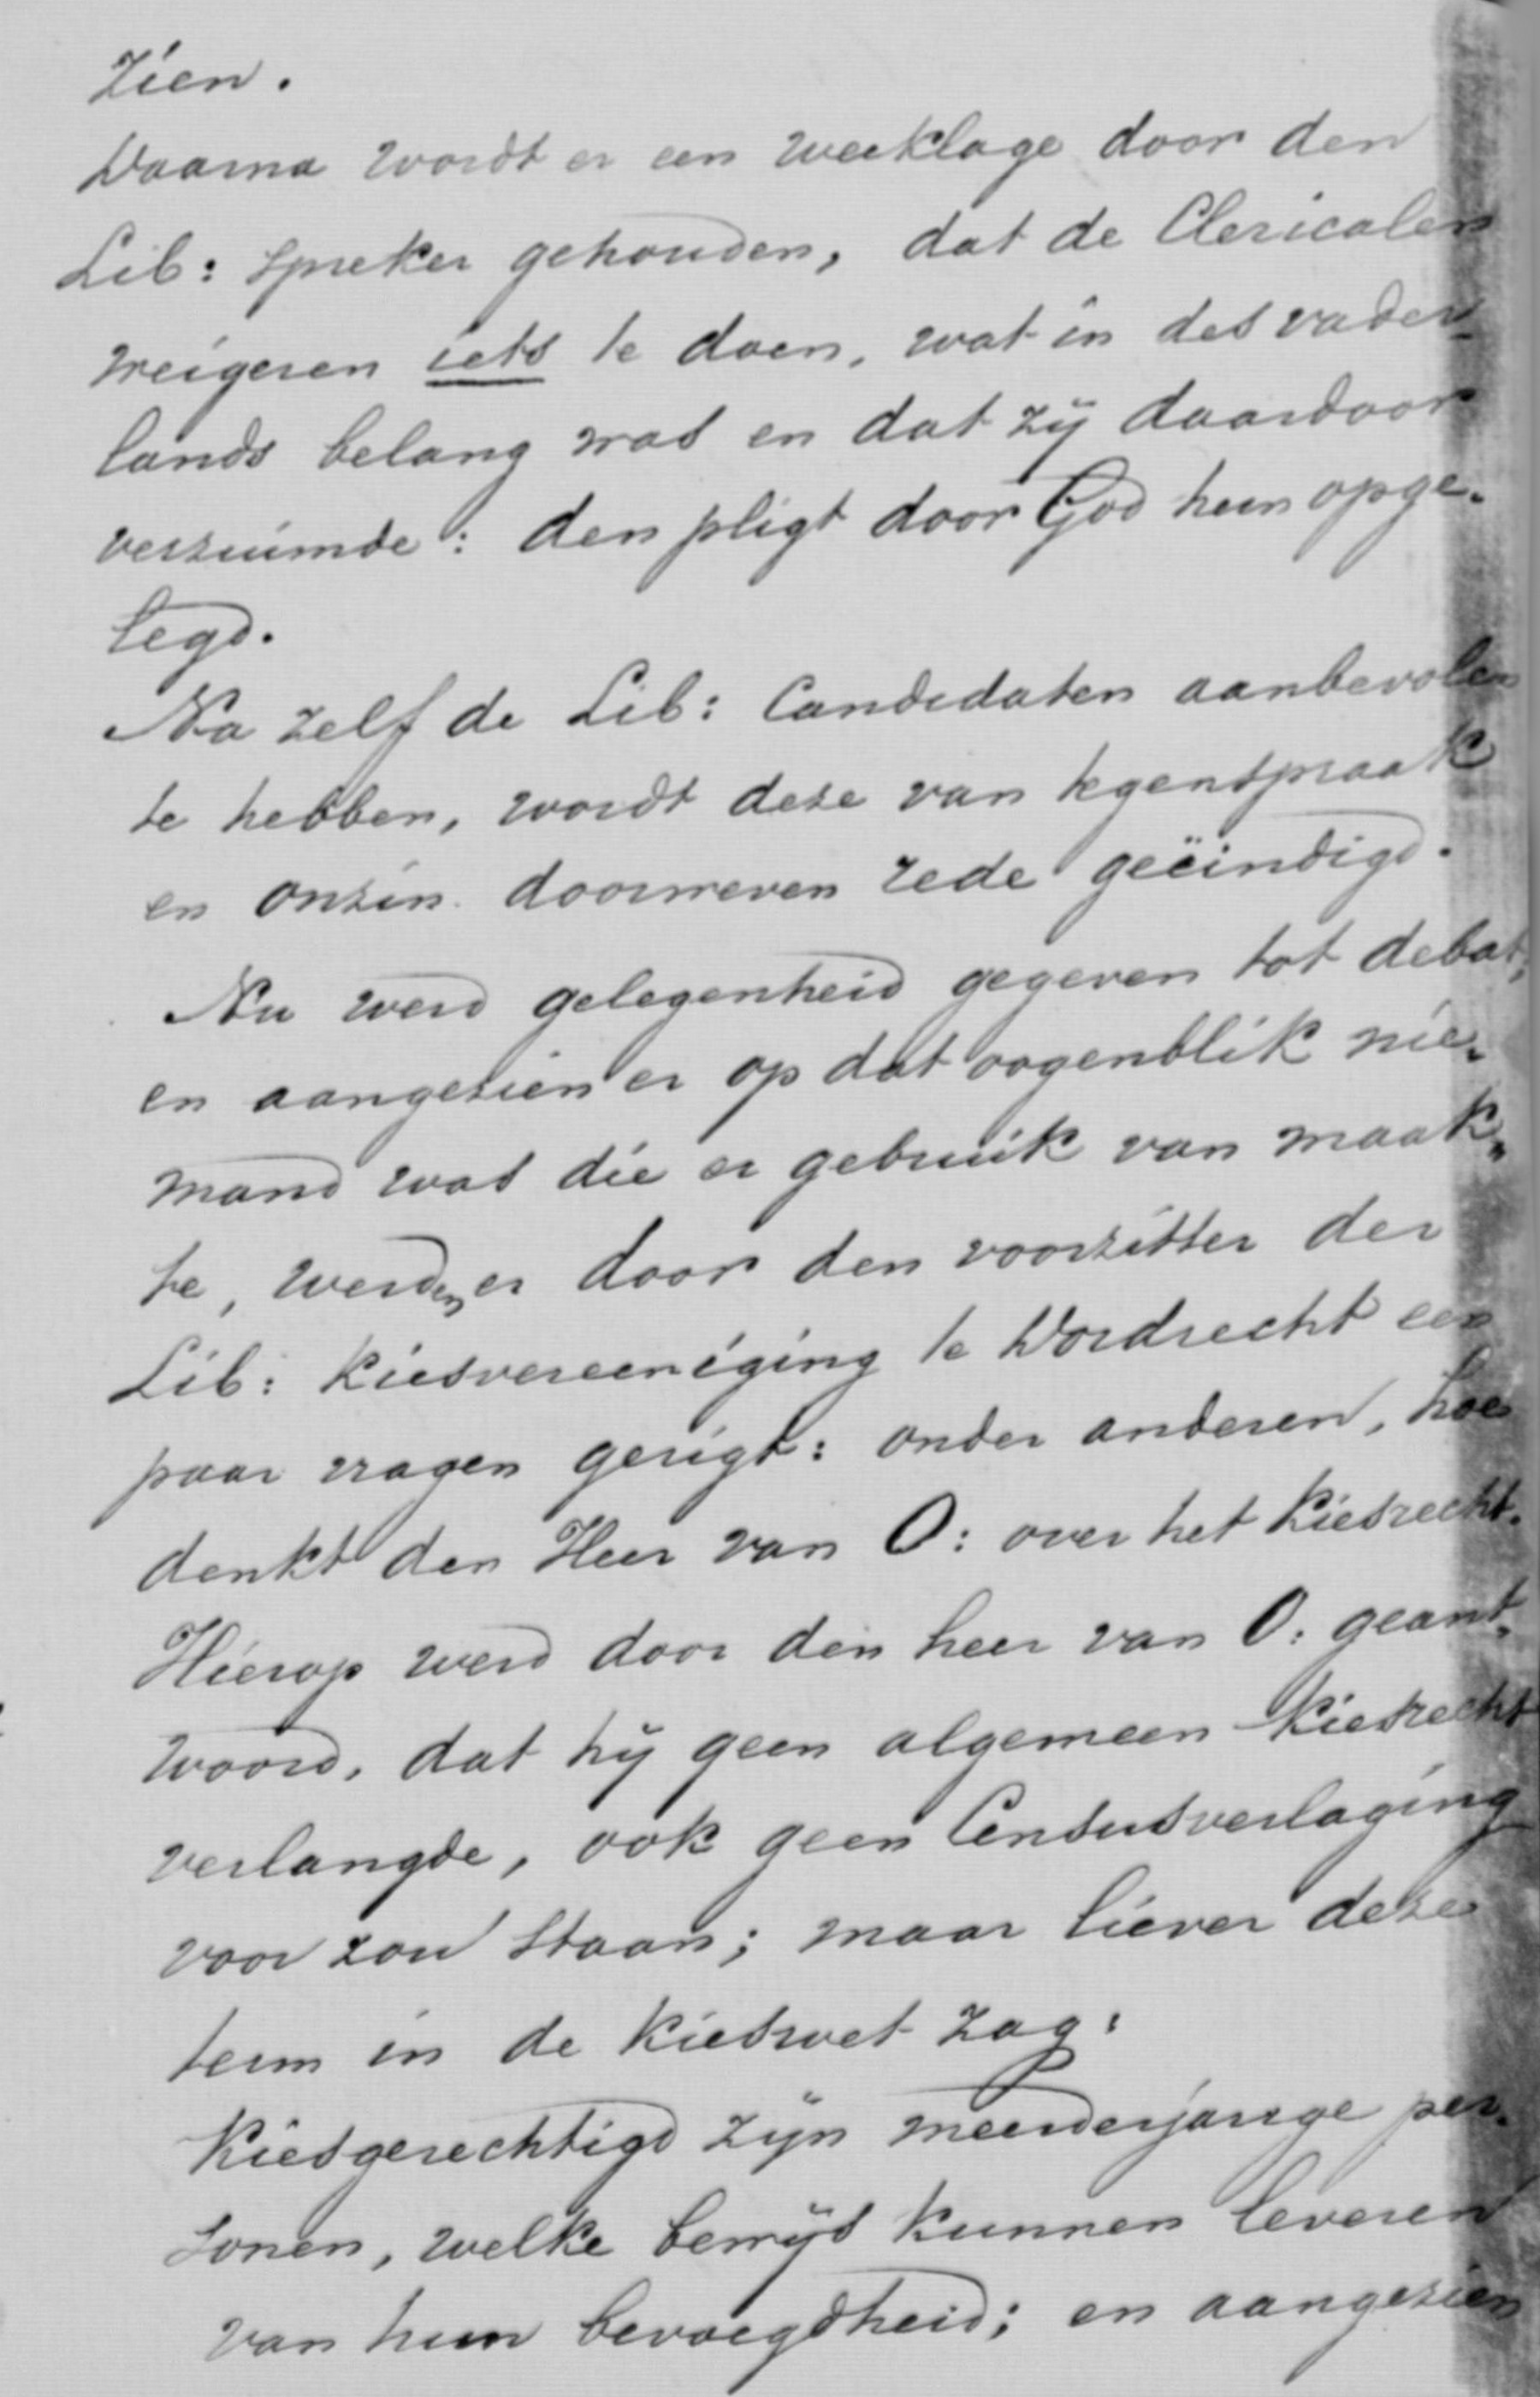 zien.
Daarna wordt er een weeklage door den
Lib: spreker gehouden, dat de Clericalen
weigeren iets te doen, wat in des vader-
lands belang was en dat zij daardoor
verzuimde: den pligt door God hun opge-
legd.
Na zelf de Lib: Candidaten aanbevolen
te hebben, wordt deze van tegenspraak
en onzin doorweven rede geëindigd.
Nu werd gelegenheid gegeven tot debat,
en aangezien er op dat oogenblik nie-
mand was die er gebruik van maak-
te, werden er door den voorzitter der
Lib: Kiesvereeniging te Dordrecht een
paar vragen gerigt: onder anderen, hoe
denkt den Heer van O: over het Kiesrecht.
Hierop werd door den heer van O: geant-
woord, dat hij geen algemeen Kiesrecht
verlangde, ook geen Censusverlaging
voor zou staan; maar liever deze
term in de Kieswet zag:
Kiesgerechtigd zijn meerderjarige per-
sonen, welke bewijs kunnen leveren
van hun bevoegdheid; en aangezien